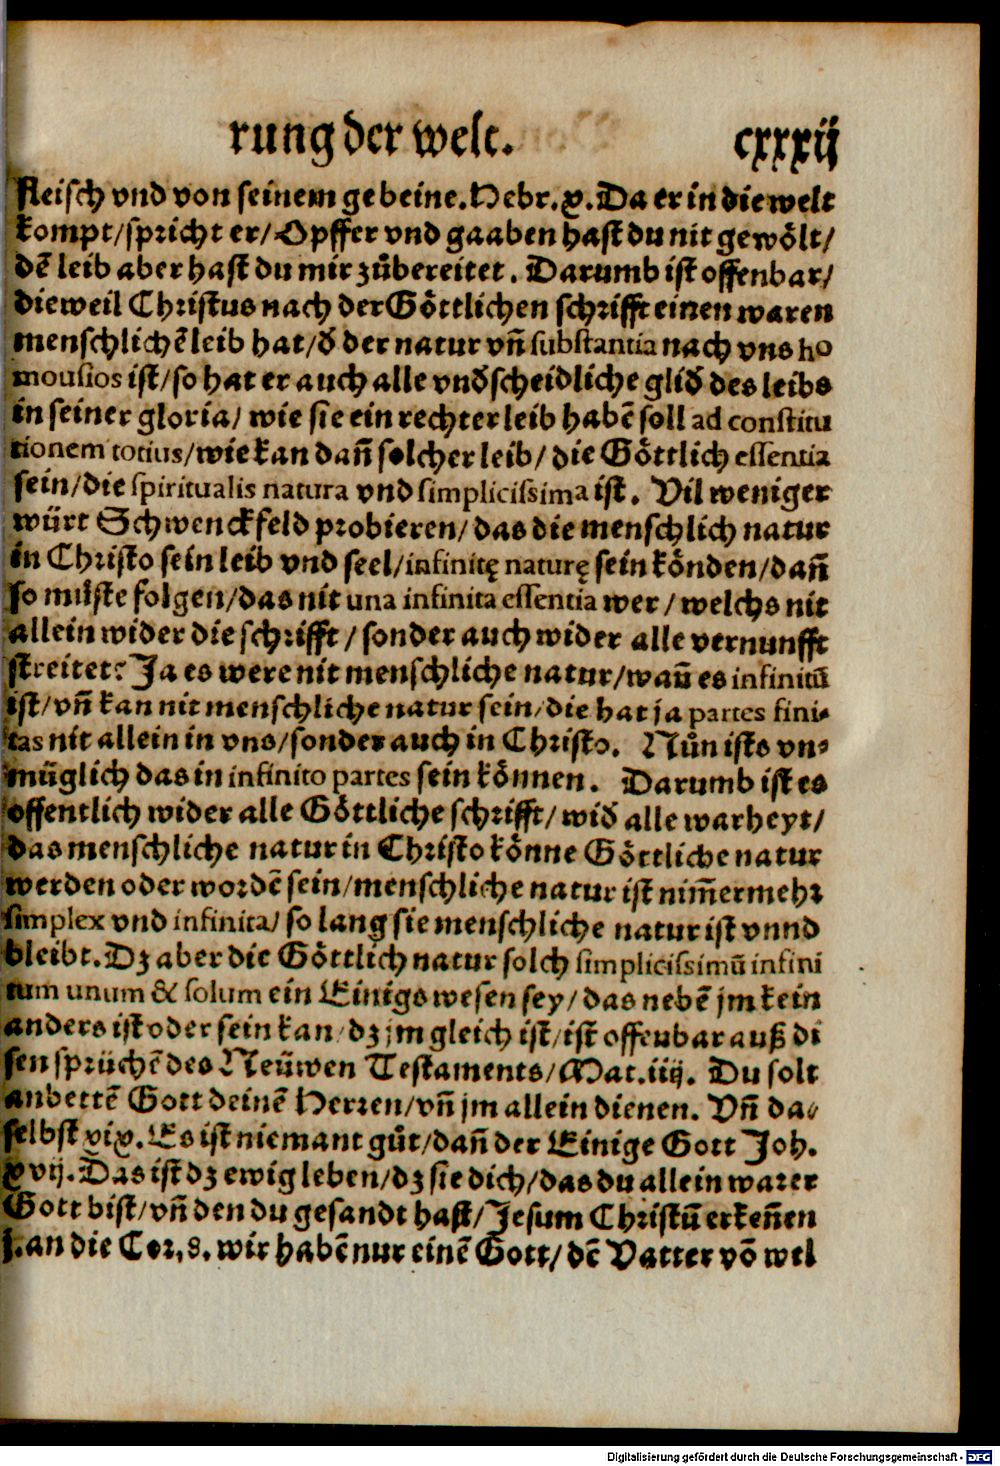 rung der welt. cxxxij
fleisch vnd von seinem gebeine. Hebr. x. Da er in die welt
kompt/ spricht er/ Opffer vnd gaaben hast du nit gewölt/
dē leib aber hast du mir zůbereitet. Darumb ist offenbar/
dieweil Christus nach der Göttlichen schrifft einen waren
menschlichē leib hat/ď der natur vn̄ substantia nach vns ho
mousios ist/ so hat er auch alle vnďscheidliche gliď des leibs
in seiner gloria/ wie sie ein rechter leib habē soll ad constitu
tionem totius/ wie kan dan̄ solcher leib/ die Göttlich essentia
sein/ die spiritualis natura vnd simplicissima ist. Vil weniger
würt Schwenckfeld probieren/ das die menschlich natur
in Christo sein leib vnd seel/ infinitę naturę sein könden/ dan̄
so müste folgen/ das nit una infinita essentia wer/ welchs nit
allein wider die schrifft/ sonder auch wider alle vernunfft
streitet: Ja es were nit menschliche natur/ wan̄ es infinitū
ist/ vn̄ kan nit menschliche natur sein/ die hat ja partes fini-
tas nit allein in vns/ sonder auch in Christo. Nůn ists vn-
müglich das in infinito partes sein können. Darumb ist es
offentlich wider alle Göttliche schrifft/ wiď alle warheyt/
das menschliche natur in Christo könne Göttliche natur
werden oder wordē sein/ menschliche natur ist nim̄ermehr
simplex vnd infinita/ so lang sie menschliche natur ist vnnd
bleibt. Dz aber die Göttlich natur solch simplicissimū infini
tum unum & solum ein Einigs wesen sey/ das nebē jm kein
anders ist oder sein kan/ dz jm gleich ist/ ist offenbar auß di
sen sprüchē des Neüwen Testaments/ Mat. iiij. Du solt
anbettē Gott deinē Herren/ vn̄ jm allein dienen. Vn̄ da-
selbst xix. Es ist niemant gůt/ dan̄ der Einige Gott Joh.
xvij. Das ist dz ewig leben/ dz sie dich/ das du allein warer
Gott bist/ vn̄ den du gesandt hast/ Jesum Christū erken̄en
j. an die Cor, 8. wir habē nur einē Gott/ dē Vatter vō wel
Digitalisierung gefördert durch die Deutsche Forschungsgemeinschaft - DFG